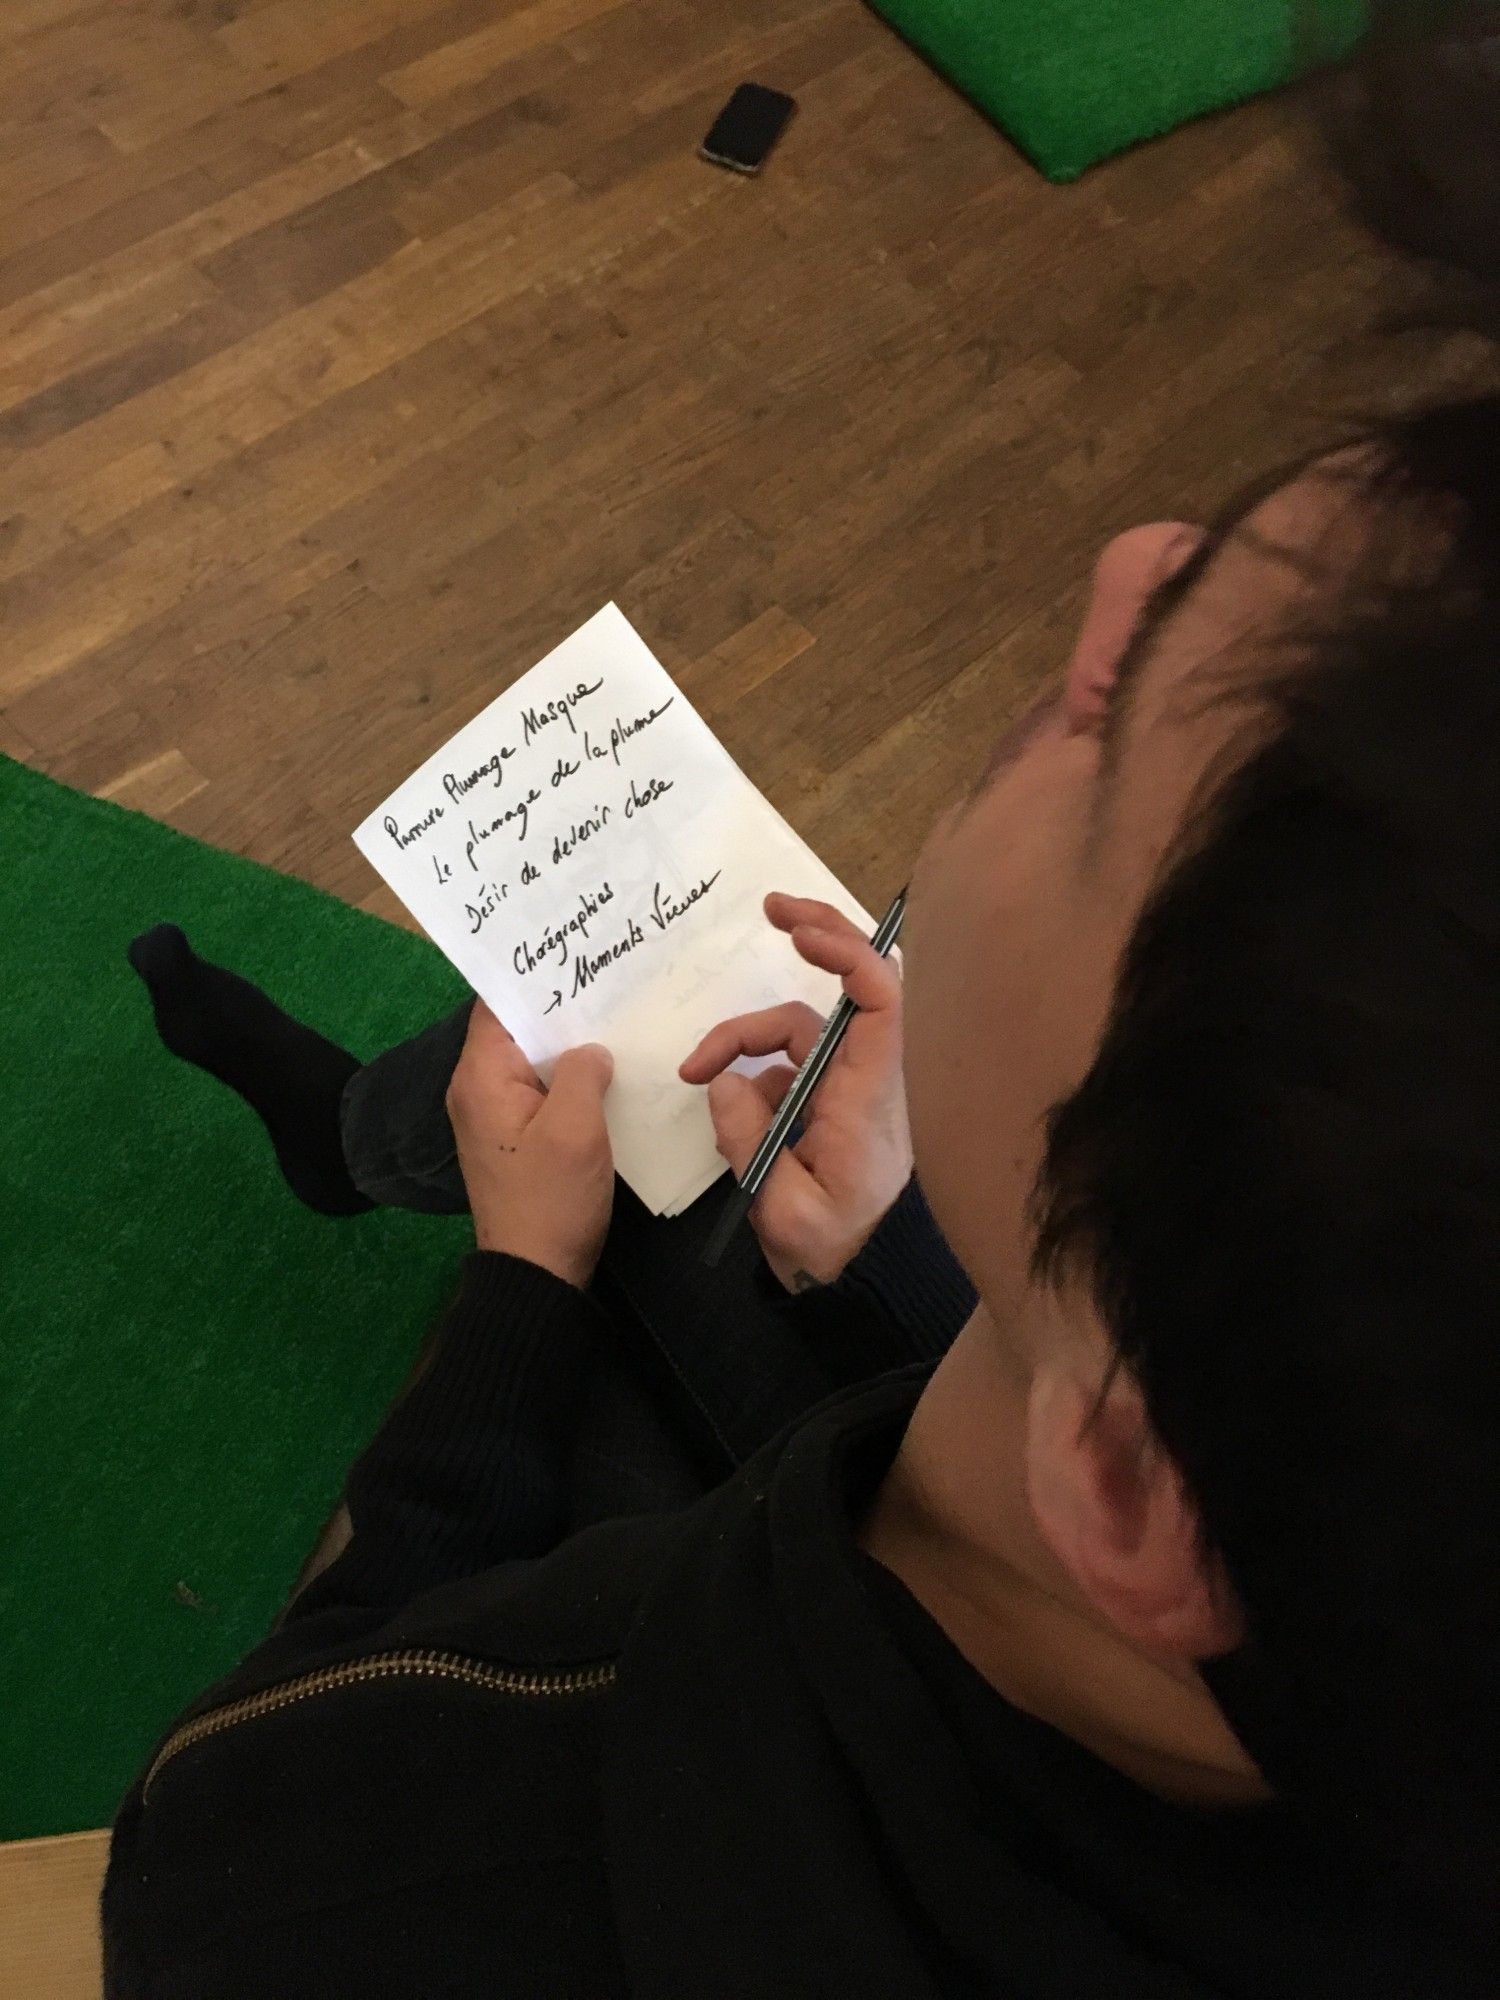 Parrure Plumage Masque
Le plumage de la plume
Désir de devenir chose
Chorégraphies
→ Moments Vécues